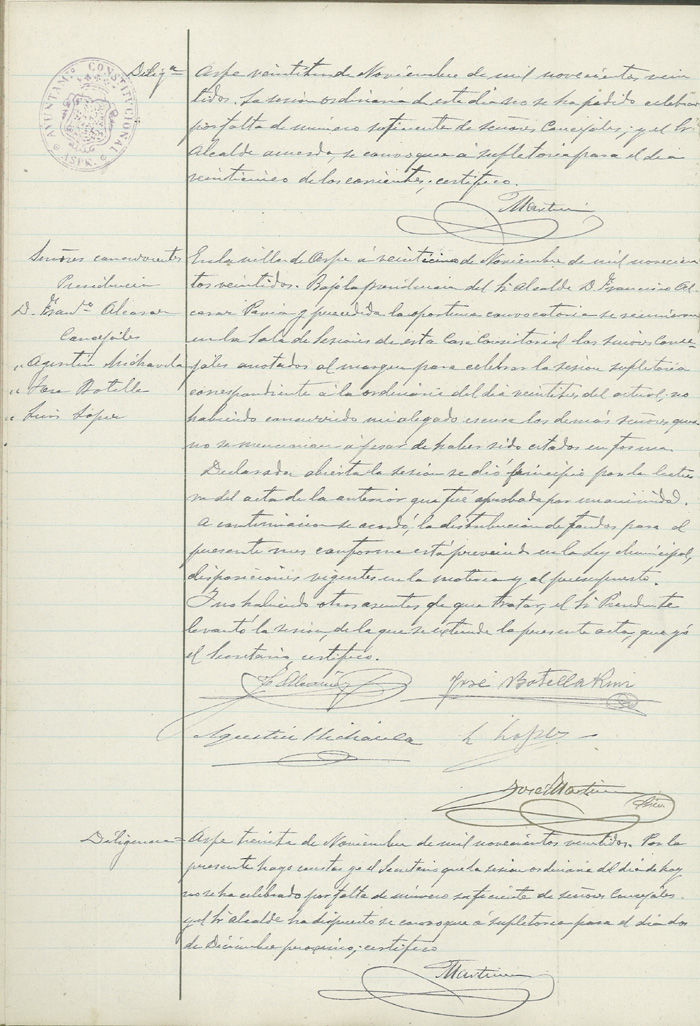 AYUNTAMTO CONSTITUCIONAL
ASPE
Diligª
Aspe veintitres de Noviembre de mil novecientos vein
tidos. La sesion ordinaria de este dia no se ha podido celebrar
por falta de número suficiente de señores Concejales; y el Sr
Alcalde acuerda, se convoque á supletoria para el dia
veinticinco de los corrientes; certifico.
Martin
Señores concurrentes
Presidencia
D. Franco Alcaraz
Concejales
" Agustin Michavila
" José Botella
" Luis López
En la villa de Aspe á veinticinco de Noviembre de mil novecien
tos veintidos. Bajo la presidencia del Sr Alcalde D. Francisco Al
caraz Pavia y precedida la oportuna convocatoria se reunieron
en la Sala de Sesiones de esta Casa Consistorial los señores Conce
jales anotados al margen para celebrar la sesion supletoria
correspondiente á la ordinaria del dia veintitres del actual; no
habiendo concurrido ni alegado escusa los demás señores que
no se mencionan á pesar de haber sido citados en forma.
Declarada abierta la sesión se dió principio por la lectu
ra del acta de la anterior que fué aprobada por unanimidad.
A continuacion se acordó, la distribucion de fondos para el
presente mes conforme está prevenido en la Ley Municipal,
disposiciones vigentes en la materia y al presupuesto.
Y no habiendo otros asuntos de que tratar, el Sr Presidente
levantó la sesión, de la que se extiende la presente acta, que yó
el Secretario certifico.
F. Alcaraz
José Botella
Agustin Michavila
L Lopez
José Martin
Diligencia =
Aspe treinta de Noviembre de mil novecientos veintidos. Por la
presente hago constar yo el Secretario que la sesion ordinaria del dia de hoy
no se ha celebrado por falta de número suficiente de señores Concejales.
y el Sr Alcalde ha dispuesto se convoque á supletoria para el dia dos
de Diciembre proximo; certifico
Martin